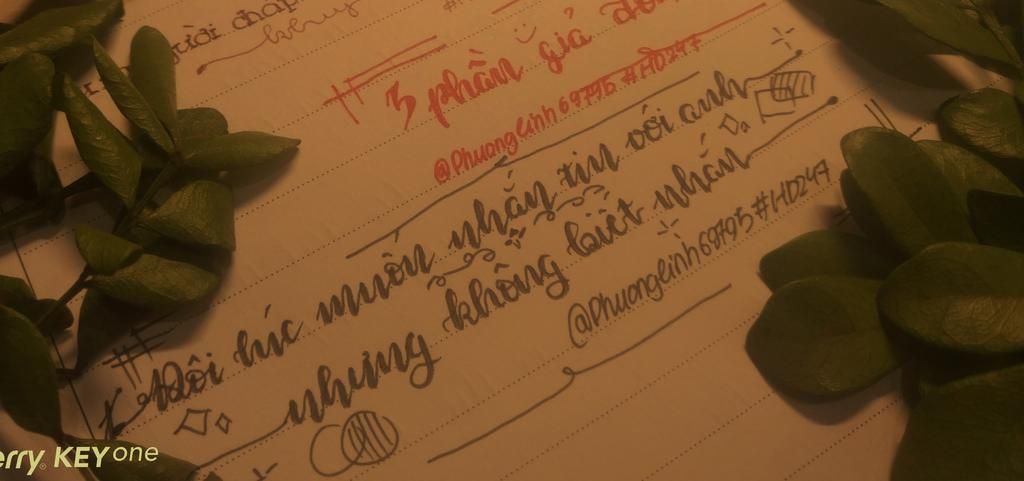 3 phần giá
@Phuonglinh69795 #HD247
Đôi lúc muốn nhắn tin với anh
nhưng không biết nhắn
@Phuonglinh69795 #HD247
erry KEYone